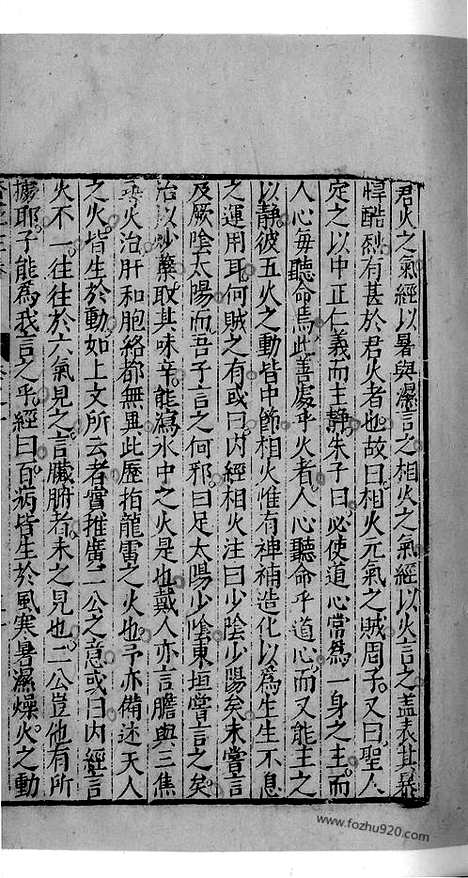 君火之氣經以暑與濕言之相火之氣經以火言之盖表其暴
悍酷烈有甚於君火者也故曰相火元氣之賊周子又曰聖人
定之以中正仁義而主靜朱子曰必使道心常為一身之主而
人心每聽命焉此善處乎火者人心聽命乎道心而又能主之
以靜彼五火之動皆中節相火惟有裨補造化以為生生不息
之運用耳何賊之有或曰内經相火注曰少陰少陽矣未嘗言
及厥陰太陽而吾子言之何邪曰足太陽少陰東垣嘗言之矣
治以炒蘗取其味辛能瀉水中之火是也戴人亦言膽與三焦
尋火治肝和胞絡都無異此歴指龍雷之火也予亦備述天人
之火皆生於動如上文所云者實推廣二公之意或曰内經言
火不一往往於六氣見之言臟腑者未之見也二公豈他有所
據耶子能為我言之乎經曰百病皆生於風寒暑濕燥火之動
www.fozhu920.com